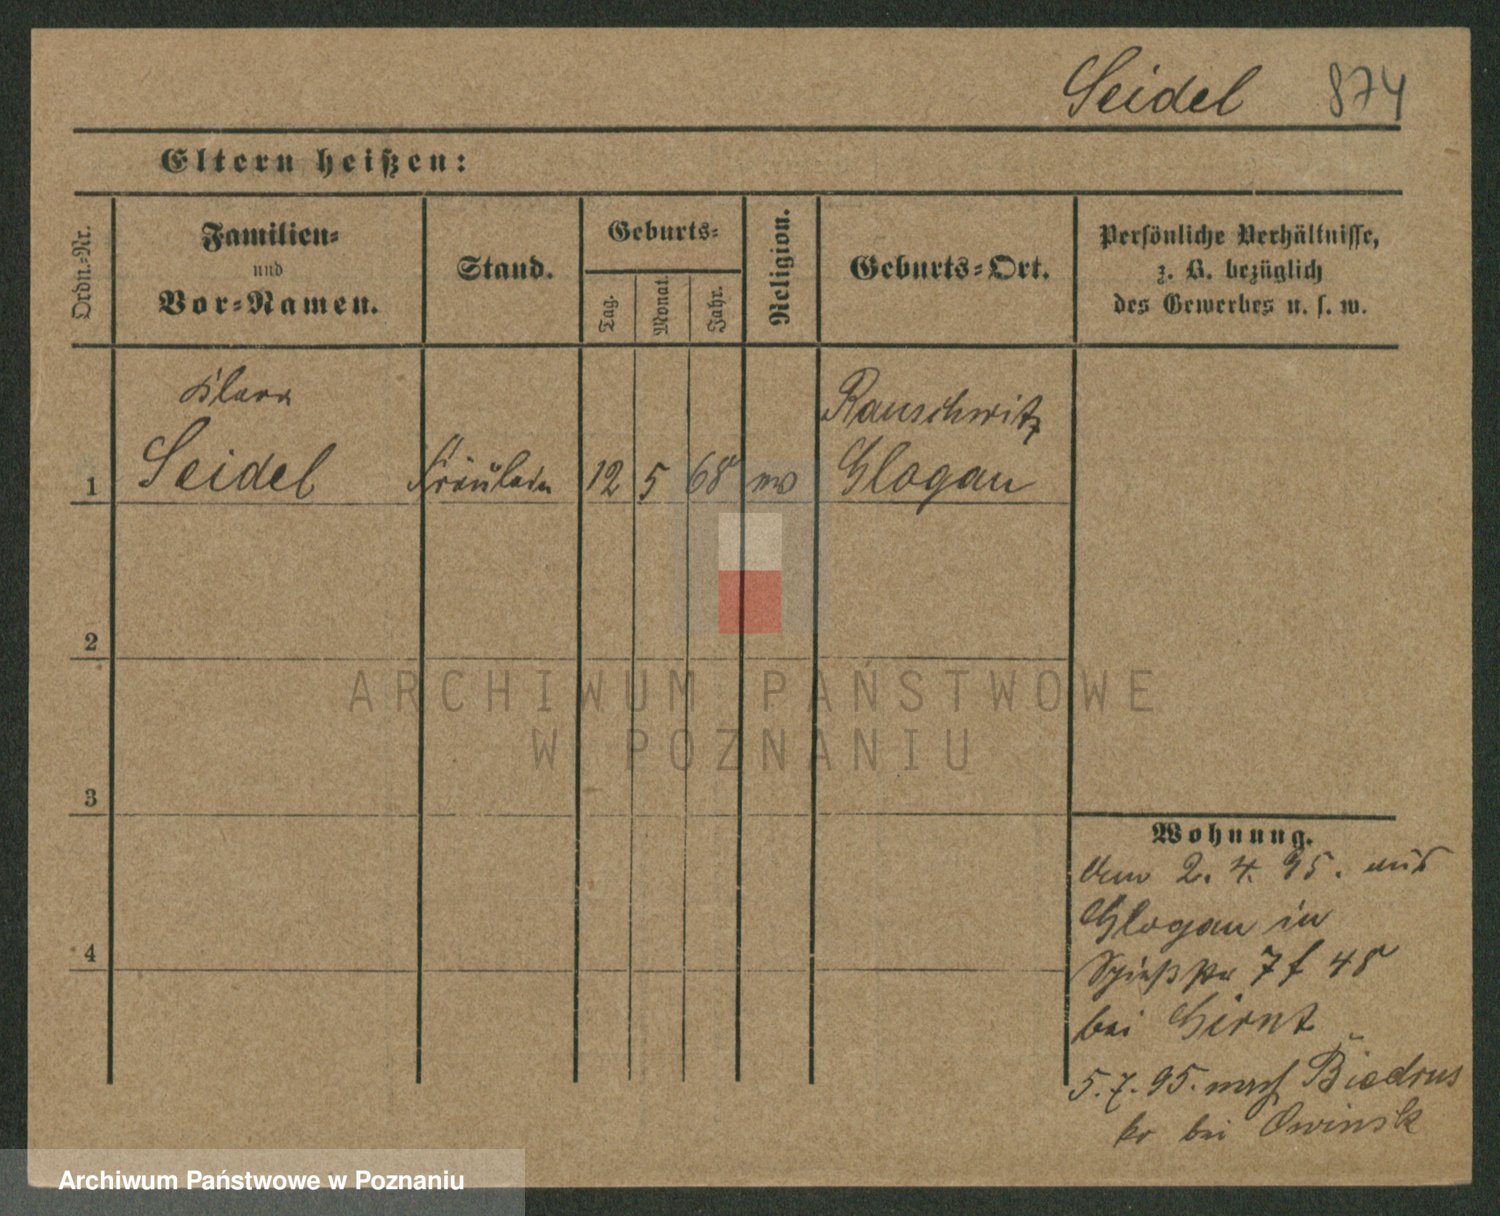 Seidel 874
Eltern heißen:
Ordn.-Nr.
Familien-
und
Vor-Namen.
Stand.
Geburts-
Tag.
Monat.
Jahr.
Religion.
Geburts-Ort.
Persönliche Verhältnisse,
z. B. bezüglich
des Gewerbes u. s. w.
Klara
Rauschwitz
1 Seidel Fräulein 12 5 68 Glogau
2
3
4
Wohnung.
2. 4. 95. aus
Glogau in
7 f 48
bei
5. 7. 95. nach Biedrus
ko bei Owinsk
ARCHIWUM PAŃSTWOWE
W POZNANIU
Archiwum Państwowe w Poznaniu